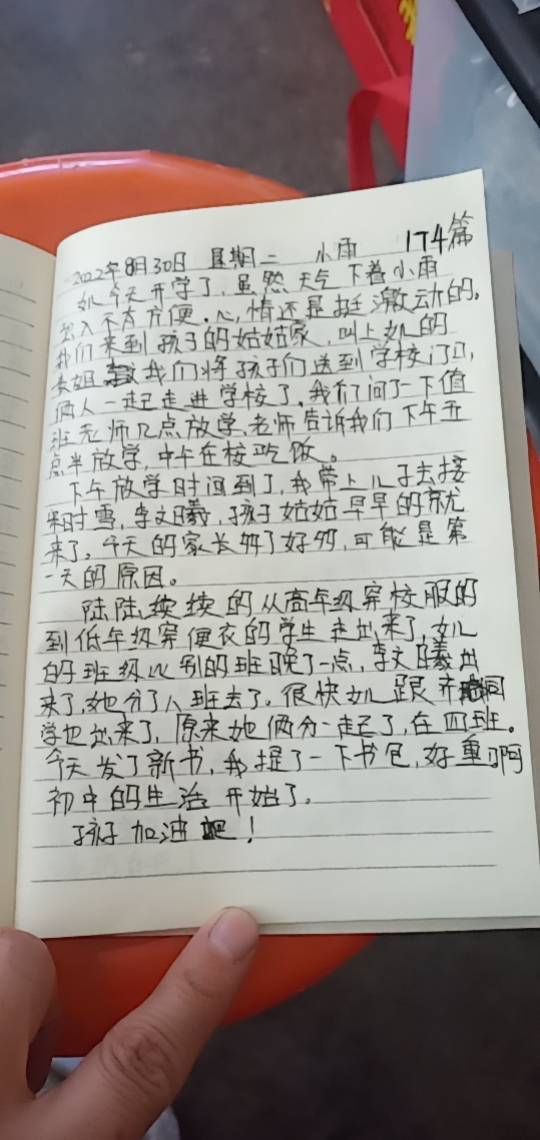 2022年8月30日 星期二 小雨 174篇
女儿今天开学了,虽然天气下着小雨
出入不太方便。心情还是挺激动的。
我们来到孩子的姑姑家,叫上女儿的
表姐 我们将孩子们送到学校门口,
俩人一起走进学校了。我们问了一下值
班老师几点放学,老师告诉我们下午五
点半放学,中午在校吃饭。
下午放学时间到了,我带上儿子去接
时雪,李文曦,孩子姑姑早早的就
来了。今天的家长好多,可能是第
一天的原因。
陆陆续续的从高年级穿校服的
到低年级穿便衣的学生走出来了,女儿
的班级比别的班晚了一点,李文曦出
来了,她分了八班去了。很快女儿跟齐同
学也出来了,原来她俩分一起了,在四班。
今天发了新书,我提了一下书包,好重啊
初中的生活开始了。
孩子加油吧!